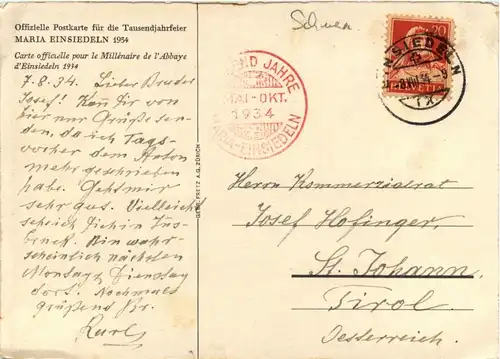 Offizielle Postkarte für die Tausendjahrfeier
MARIA EINSIEDELN 1934
Carte officielle pour le Millénaire de l'Abbaye
d'Einsiedeln 1934
7.8.34. Lieber Bruder
Josef! Kann Dir von
hier nur Grüße sen-
den, da ich Tags-
vorher dem Anton
mehr geschrieben
habe. Geht mir
sehr gut. Vielleicht
seh ich Dich in Inns-
bruck. Bin wahr-
scheinlich nächsten
Montag, Dienstag
dort. Nochmals
grüßend Br.
Karl
GEBR. FRETZ A.G. ZÜRICH
JAHRE
MAI-OKT.
1934
MARIA-EINSIEDELN
20
HELVETIA
EINSIEDELN
VIII 34-9
Herrn Kommerzialrat
Josef Hofinger,
St. Johann.
Tirol.
Oesterreich.